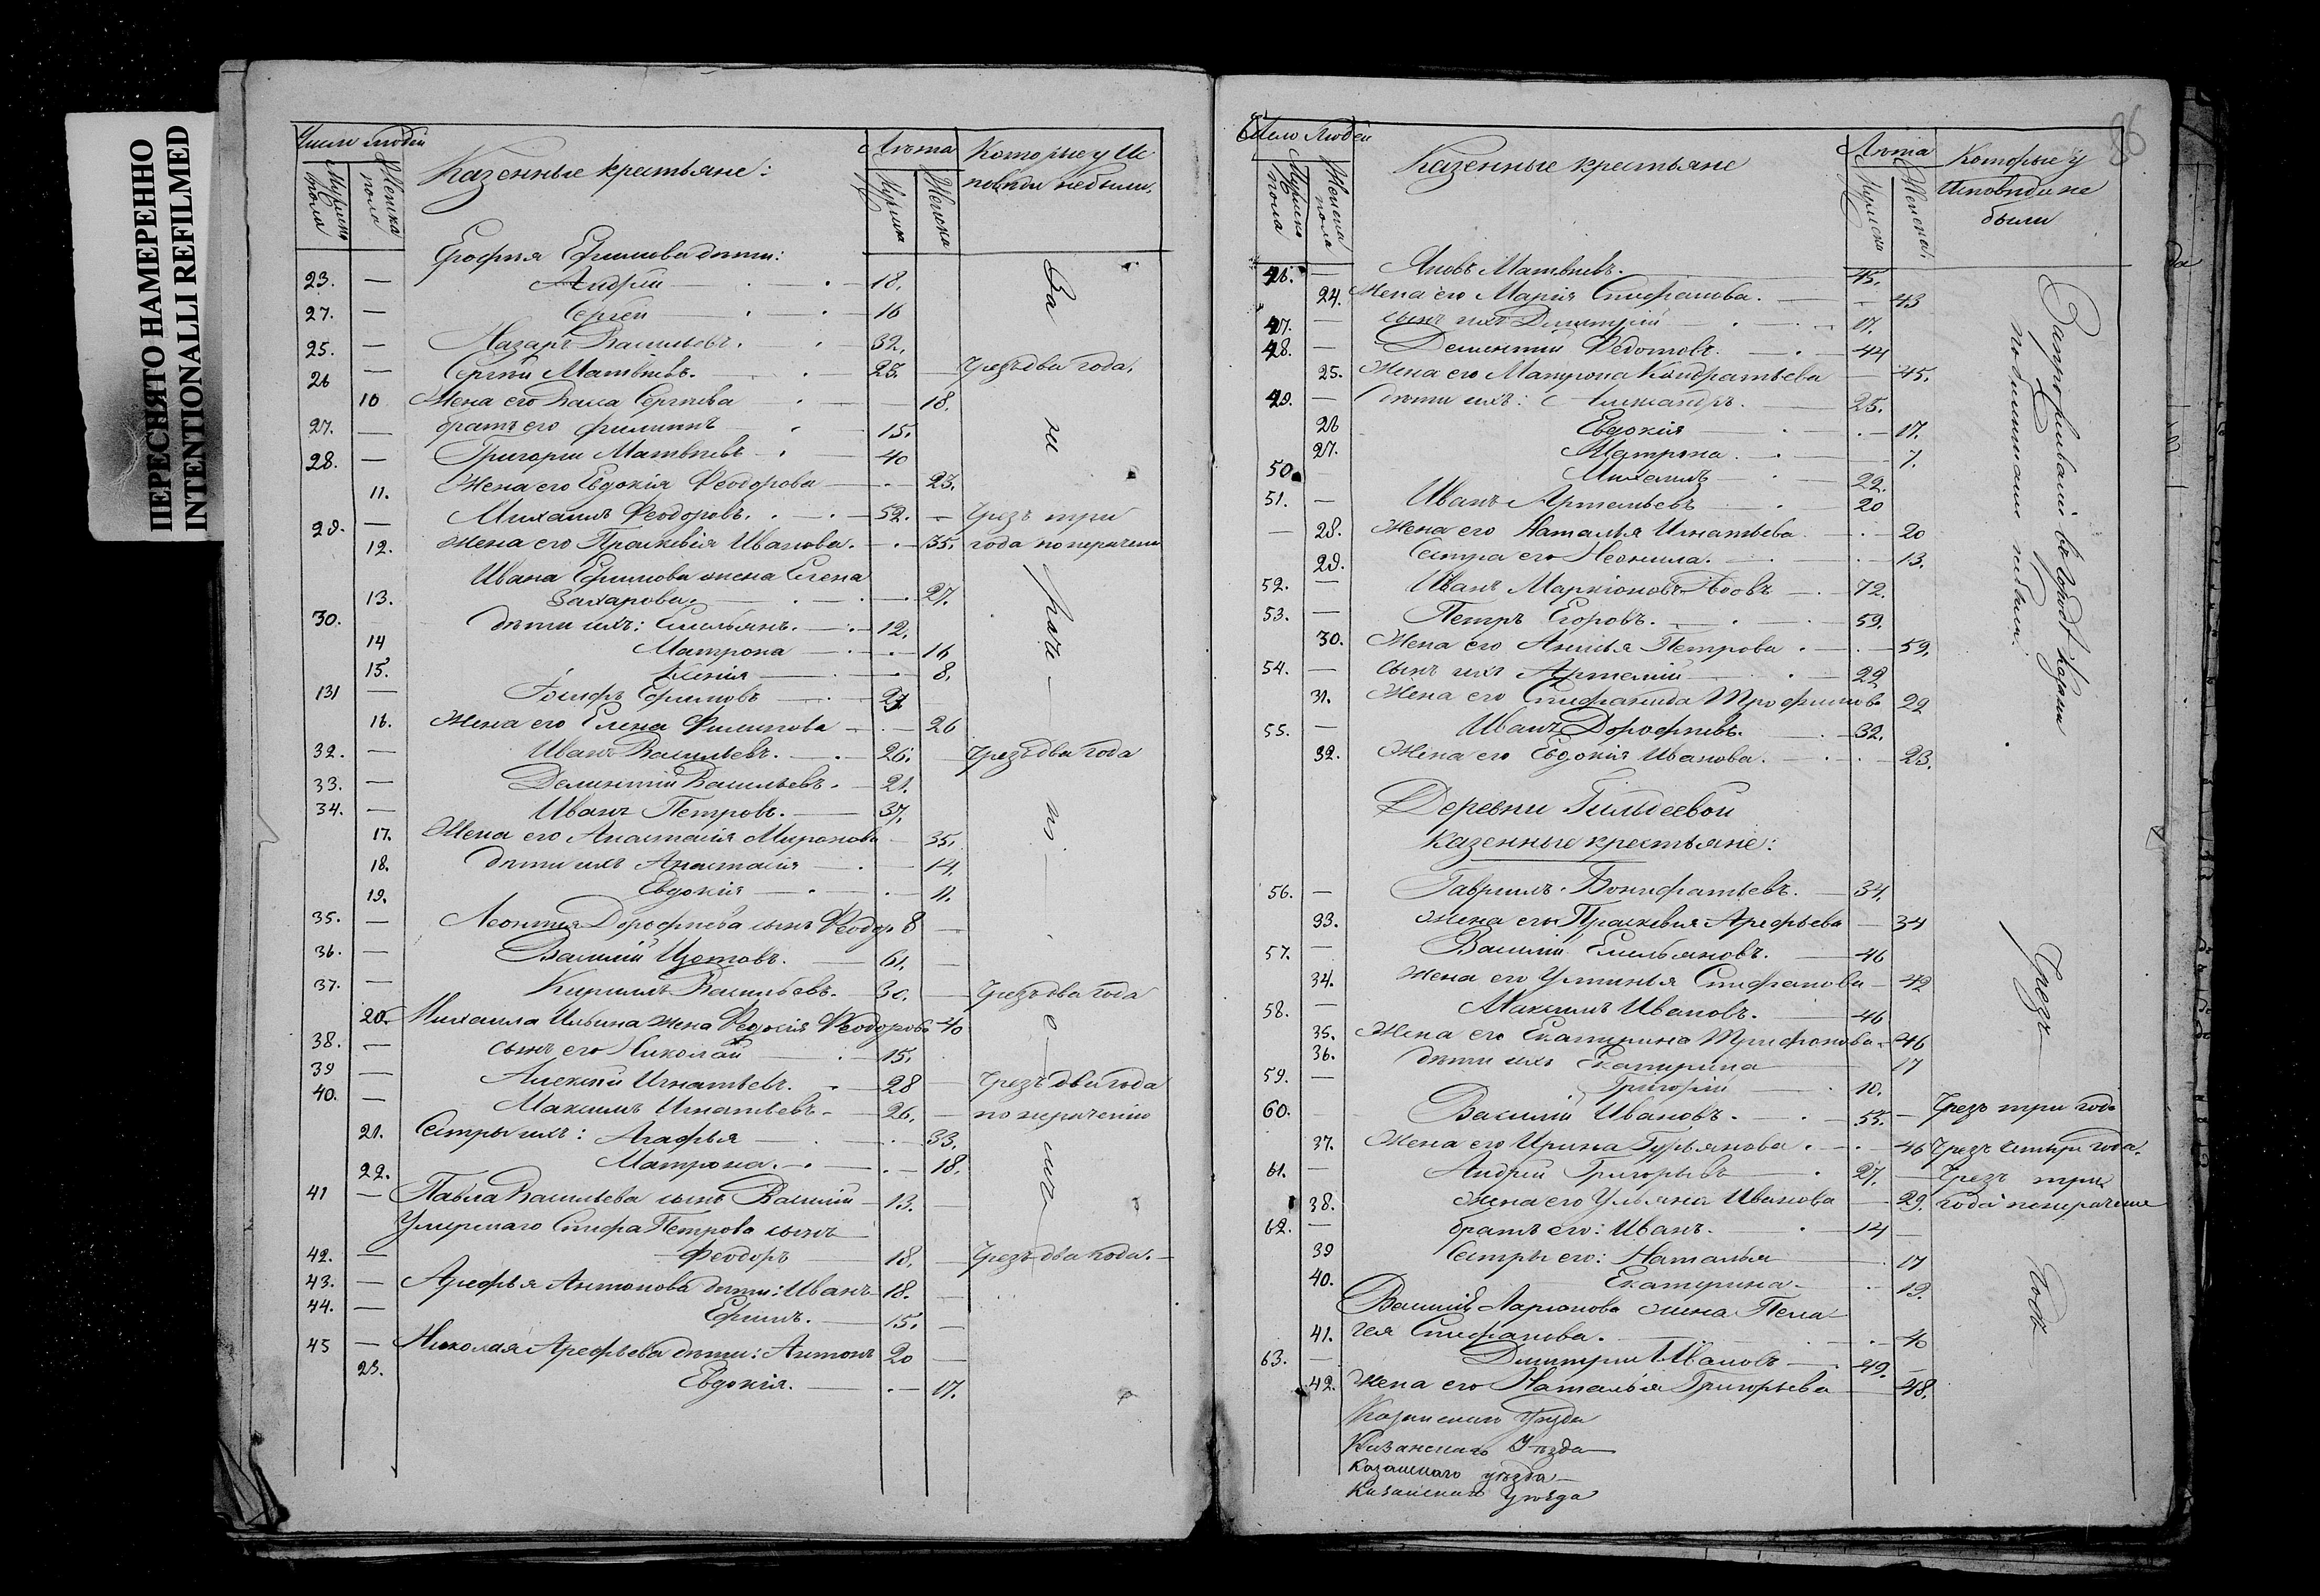 ПЕРЕСНЯТО НАМЕРЕННО
INTENTIONALLI REFILMED
Число людей
Мужеска пола
Женска пола
Казенные крестьяне:
Лѣта
Мужеска
Женска
Которые у Ис
повѣди небыли.
Ерофѣя Ефимова дѣти:
23. — Андрей — 18.
27. — Сергей — 16
25. — Назаръ Васильевъ. 32.
26 — Сергѣй Матвѣевъ. 23. — Чрезъ два года.
10 Жена его Васса Сергѣева — 18.
27. — братъ его Филиппъ 15.
28. — Григорій Матвѣевъ 40
11. Жена его Евдокія Феодорова — 23.
29. — Михаилъ Феодоровъ. 52. — Чрезъ три
12. жена его Прасковія Иванова. — 35. года по нерачению
Ивана Ефимова жена Елена
13. Захарова. — 27.
30. дѣти ихъ: Емельянъ. 12.
14 Матрона — 16
15. Ксенія — 8.
131 — Іосифъ Ефимовъ 27
16. Жена его Елена Филипова — 26
32. — Иванъ Васильевъ. 26. — Чрезъ два года
33. — Дементій Васильевъ. 21.
34. — Иванъ Петровъ. 37.
17. Жена его Анастасія Миронова 35.
18. дѣти ихъ Анастасія — 14.
19. Евдокія — 11.
35. — Леонтія Дорофѣева сынъ Феодор 8 —
36. — Василій Изотовъ. — 61. —
37. — Кириллъ Васильевъ. — 30. — Чрезъ два года
20. Михаила Ильина жена Федосія Феодорова 40
38. — сынъ его Николай 15.
39 — Алексѣй Игнатьевъ. — 28 — Чрезъ два года
40. — Максимъ Игнатьевъ — 26. — по нерачению
21. Сестры ихъ: Агафья — 33.
22. Матрона. — 18.
41 — Павла Васильева сынъ Василій — 13. —
Умершаго Петрова сынъ
42. — Феодоръ 18. — Чрезъ два года. —
43. — Арефья Антонова дѣти: Иванъ 18. —
44. — Ефимъ. — 15. —
45 — Николая Арефьева дѣти: Антонъ 20 —
23. Евдокія. — 17.
За
не
раче
ні
е
86
Число Людей
Мужеска пола
Женска пола
Казенные крестьяне
Лѣта
Мужеска
Женска
Которые у
Исповѣди не
были
46. — Яковъ Матвѣевъ. 45.
24. Жена его Марія Стефанова. — 43
47. — сынъ ихъ Димитрій 17.
48. — Дементій Федотовъ. — 44
25. Жена его Матрона Кондратьева — 45.
49. — дѣти ихъ: Александръ. — 25.
26 Евдокія — 17.
27. Матрона. — 7.
50 Михаилъ 22.
51. — Иванъ Артемьевъ 20
— 28. жена его Наталья Игнатьева — 20
29. Сестра его Неонила. — 13.
52. — Иванъ Маркіоновъ вдовъ — 72.
53. — Петръ Егоровъ. — 59.
30. Жена его Анисья Петрова — 59.
54. — сынъ ихъ Артемій 22
31. Жена его Стефанида Трофимова 22
55. — Иванъ Дорофѣевъ. — 32.
32. Жена его Евдокія Иванова. — 23.
Деревни Гильдеевой
казенные крестьяне:
56. — Гавріилъ Вонифатьевъ. — 34.
33. жена его Прасковія Арефьева — 34
57. — Василій Емельяновъ. — 46
34. жена его Устинья Стефанова — 42
58. — Максимъ Ивановъ. — 46
35. Жена его Екатерина Трифонова 46
36. дѣти ихъ Екатерина — 17
59. — Григорій 10.
60. — Василій Ивановъ. 55. — Чрезъ три года
37. Жена его Ирина Гурьянова — 46 Чрезъ четыре года.
61. — Андрей Григорьевъ — 27. — Чрезъ три
38. жена его Ульяна Иванова — 29. года по нерачению
62. — братъ его: Иванъ. 14 —
39 Сестры его: Наталья — 17
40. Екатерина. — 12.
Василія Ларионова жена Пела
41. гея Стефанова. — 40
63. — Димитрій Ивановъ — 49. —
42. жена его Наталья Григорьева — 48.
Казанскаго Уѣзда
Казанскаго Уѣзда
Казанскаго уѣзда
Казанскаго уѣзда
Чрезъ
годъ